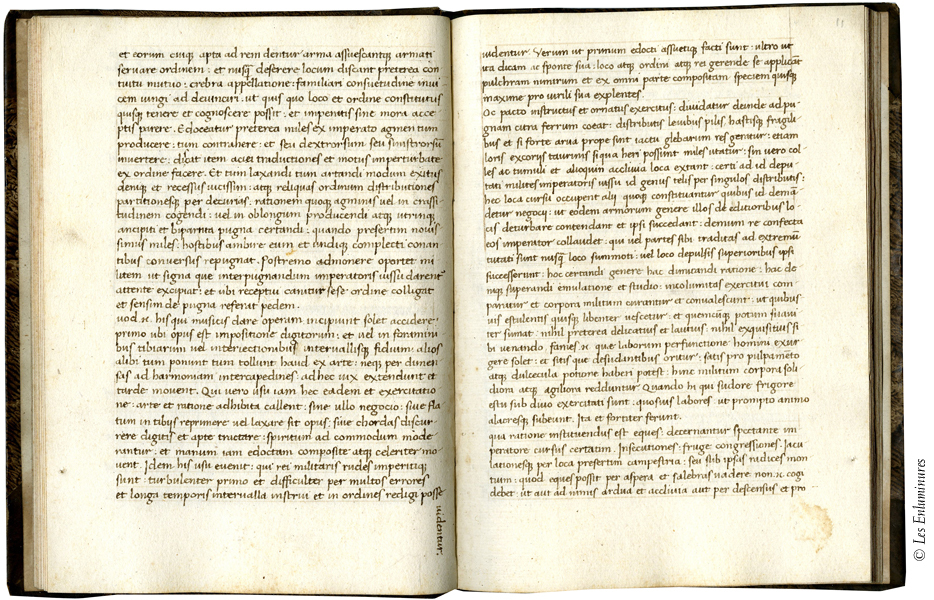 et eorum cuiqꝫ apta ad rem dentur arma assuescantqꝫ armati
servare ordinem: et nusqꝫ deserere locum discant preterea con
tuitu mutuo: crebra appellatione: familiari consuetudine invi
cem iungi ad devinciri: ut quis quo loco et ordine constitutus
quisqꝫ tenere et cognoscere possit: et impenitis sine mora acce
ptis parere. Edoceatur preterea miles ex imperato agmen tum
producere: tum contrahere: et seu dextrorsum seu sinistrorsum
invertere: dicat item aciei traductiones et motus imperturbate
ex ordine facere. Et tum laxandi tum artandi modum exitus
deniqꝫ et recessus vicissim: atqꝫ reliquas ordinum distributiones
partitionesqꝫ per decurias: rationem quoqꝫ agminis vel in crassi
tudinem cogendi: vel in oblongum producendi atqꝫ utrinqꝫ
ancipiti et bipartita pugna certandi: quando presertim novis
simus miles: hostibus ambire eum et undiqꝫ complecti conan
tibus conversus repugnat. Postremo admonere oportet mi
litem ut signa que inter pugnandum imperatoris iussu darent
attente excipiat: et ubi receptui canitur sese ordine colligat
et sensim de pugna referat pedem.
his qui musicis dare operam incipiunt solet accidere:
primo ubi opus est impositione digitorum: et vel in foramini
bus tibiarum vel intersectionibus intervallisqꝫ fidium: alios
alibi tum ponunt tum tollunt haud ex arte: neqꝫ per dimen
sas ad harmoniam intercapedines: ad hec vix extendunt et
tarde movent. Qui vero usu iam hec eadem et exercitatio
ne: arte et ratione adhibita callent: sine ullo negocio: sive fla
tum in tibus reprimere vel laxare fit opus: sive chordas discur
rere digitis et apte tractare: spiritum ad commodum mode
rantur: et manum iam edoctam composite atqꝫ celeriter mo
vent. Idem his usu evenit: qui rei militaris rudes imperitiqꝫ
sunt: turbulenter primo et difficulter per multos errores
et longa temporis intervalla instrui et in ordines redigi posse
videntur.
videntur. Verum ut primum edocti assuetiqꝫ facti sunt: ultro ut
ita dicam ac sponte sua: loco atqꝫ ordini atqꝫ rei gerende se applicāt
pulchram nimirum et ex omni parte compositam speciem quisqꝫ
maxime pro virili sua explentes.
Oc pacto instructus et ornatus exercitus: dividatur deinde ad pu
gnam citra ferrum coeat: distributis levibus pilis hastisqꝫ fragili
bus et si forte arva prope sint iactu glebarum res genitur: etiam
loris ex coriis taurinis siqua heri possunt miles utatur: sin vero col
les ac tumuli et alioquin acclivia loca extant: certi ad id depu
tati milites imperatoris iussu id genus telis per singulos distributis:
hec loca cursu occupent alii quoqꝫ constituantur quibus id demā
detur negocii: ut eodem armorum genere illos de editioribus lo
cis deturbare contendant et ipsi succedant: demum re confecta
eos imperator collaudet: qui vel partes sibi traditas ad extremū
tutati sunt nusqꝫ loco summoti: vel loco depulsis superioribus ipsi
successerunt: hoc certandi genere hac dimicandi ratione: hac de
niqꝫ superandi emulatione et studio: incolumitas exercitui com
paratur et corpora militum curantur et convalescunt: ut quibus
vis esculentis quisqꝫ libenter vescetur: et quemcūqꝫ potum suavi
ter sumat: nihil preterea delicatius et lautius: nihil exquisitius si
bi venando. fames &c. que laborum perfunctione homini exur
gere solet: et sitis que desudantibus oritur: satis pro pulpamēto
atqꝫ dulcecula potione haberi potest: hinc militum corpora soli
diora atqꝫ agiliora redduntur Quando hi qui sudore frigore
estu sub divo exercitati sunt: quosuis labores: ut prompto animo
alacresqꝫ subeunt. Ita et fortiter ferunt.
qua ratione instituendus est eques: decernantur spectante im
peratore cursus certatim. Insecutiones: fruge: congressiones. Iacu
lationesqꝫ per loca presertim campestria: seu sub ipsas radices mon
tium: quod eques possit per aspera et salebras vadere non &c. cogi
debet: ut aut ad nimis ardua et acclivia aut per descensus et pro
© Les Enluminures